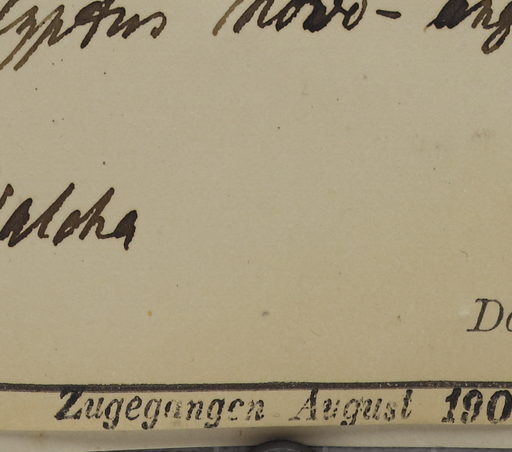 lyptus novo-ang
alcha
Do
Zugegangen August 190